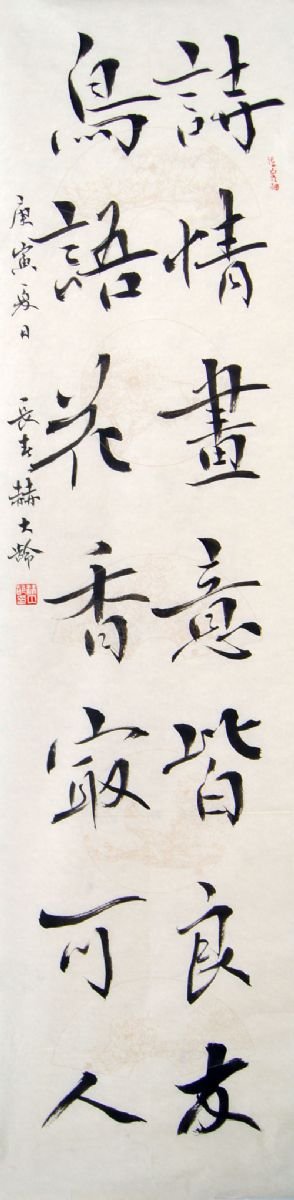 詩情畫意皆良友
鳥語花香㝡可人
庚寅夏日 長春赫大龄